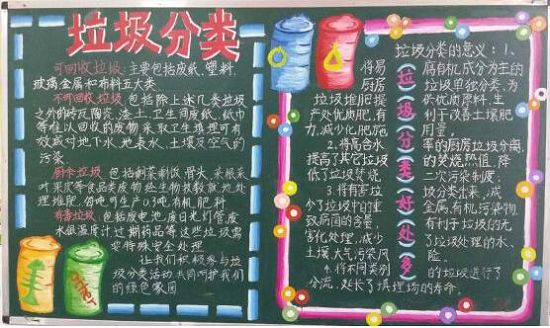 垃圾分类
可回收垃圾:主要包括废纸,塑料,
玻璃金属和布料五大类
不可回收垃圾 包括除上述几类垃圾
之外的砖瓦陶瓷,渣土,卫生间废纸,纸巾
等难以回收的废物采取卫生填埋可有
效减对地下水,地表水,土壤及空气的
污染
厨余垃圾 包括剩菜剩饭骨头,菜根菜
叶果皮等食品类废物经生物技数就地处
理堆肥,每吨可生产0.3吨有机肥料
有毒垃圾,包括废电池,废日光灯管废
水银温度计过期药品等这些垃圾需
要特殊安全处理
让我们积极参与大
垃圾分类活动共同呵护我们
的绿色家园
垃圾分类的意义:1、
将易腐有机成分为主的
厨房垃圾单独分类,为
垃圾堆肥提供优质原料,生
产处优质肥,有利于改善土壤肥
力,减少化肥施用量。
2、将高含水率的厨房垃圾分离,
提高了其它垃圾的焚烧热值,降
低了垃圾焚烧二次污染制度
3.将有害垃圾分类出来,减
少了垃圾中的重金属,有机污染物,
致病菌的含量,有利于垃圾的无
害化处理,减少了垃圾处理的水、
土壤大气污染风险。
4、将不同类别的垃圾进行了
分流,延长了填埋场的寿命。
(垃圾分类好处多)